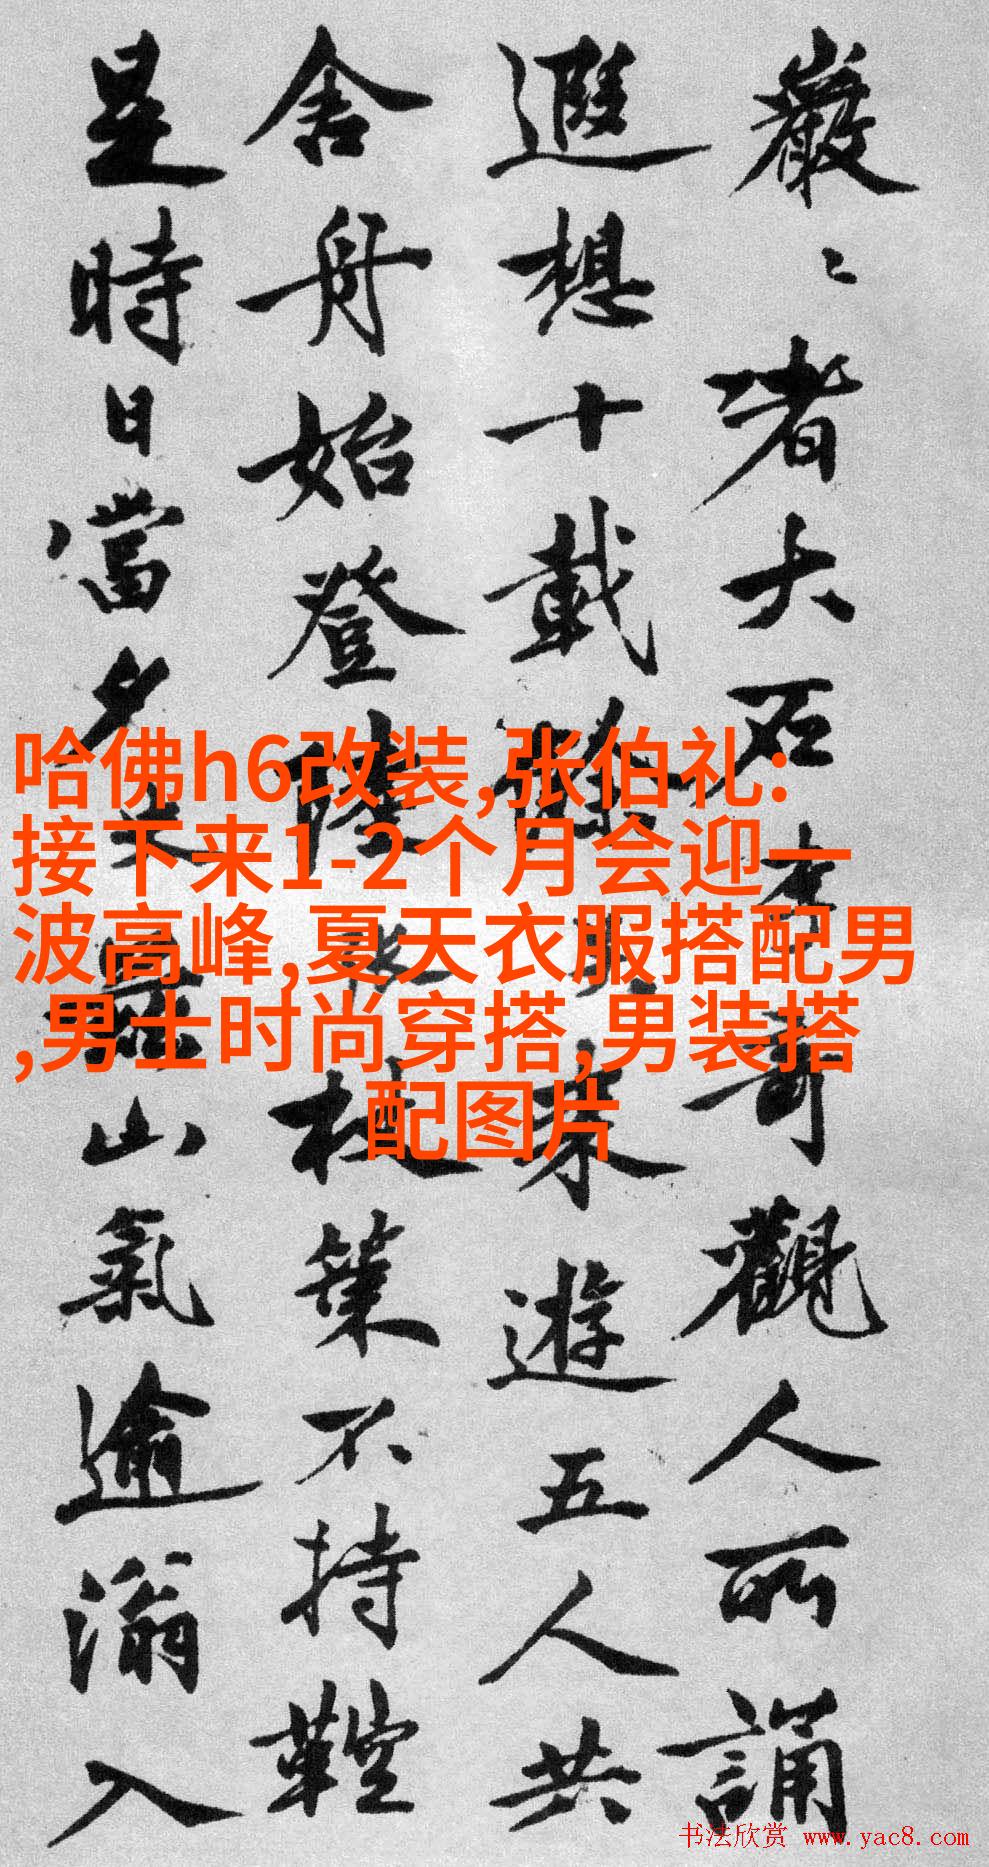 巖〻者大石奇觀人所誦
遐想十載餘來遊五人共
舍舟始登陸杖策不持鞚
是時日當夕山氣逾滃入
哈佛h6改装,张伯礼:
接下来1-2个月会迎一
波高峰,夏天衣服搭配男
,男士时尚穿搭,男装搭
配图片
书法欣赏 www.yac8.com